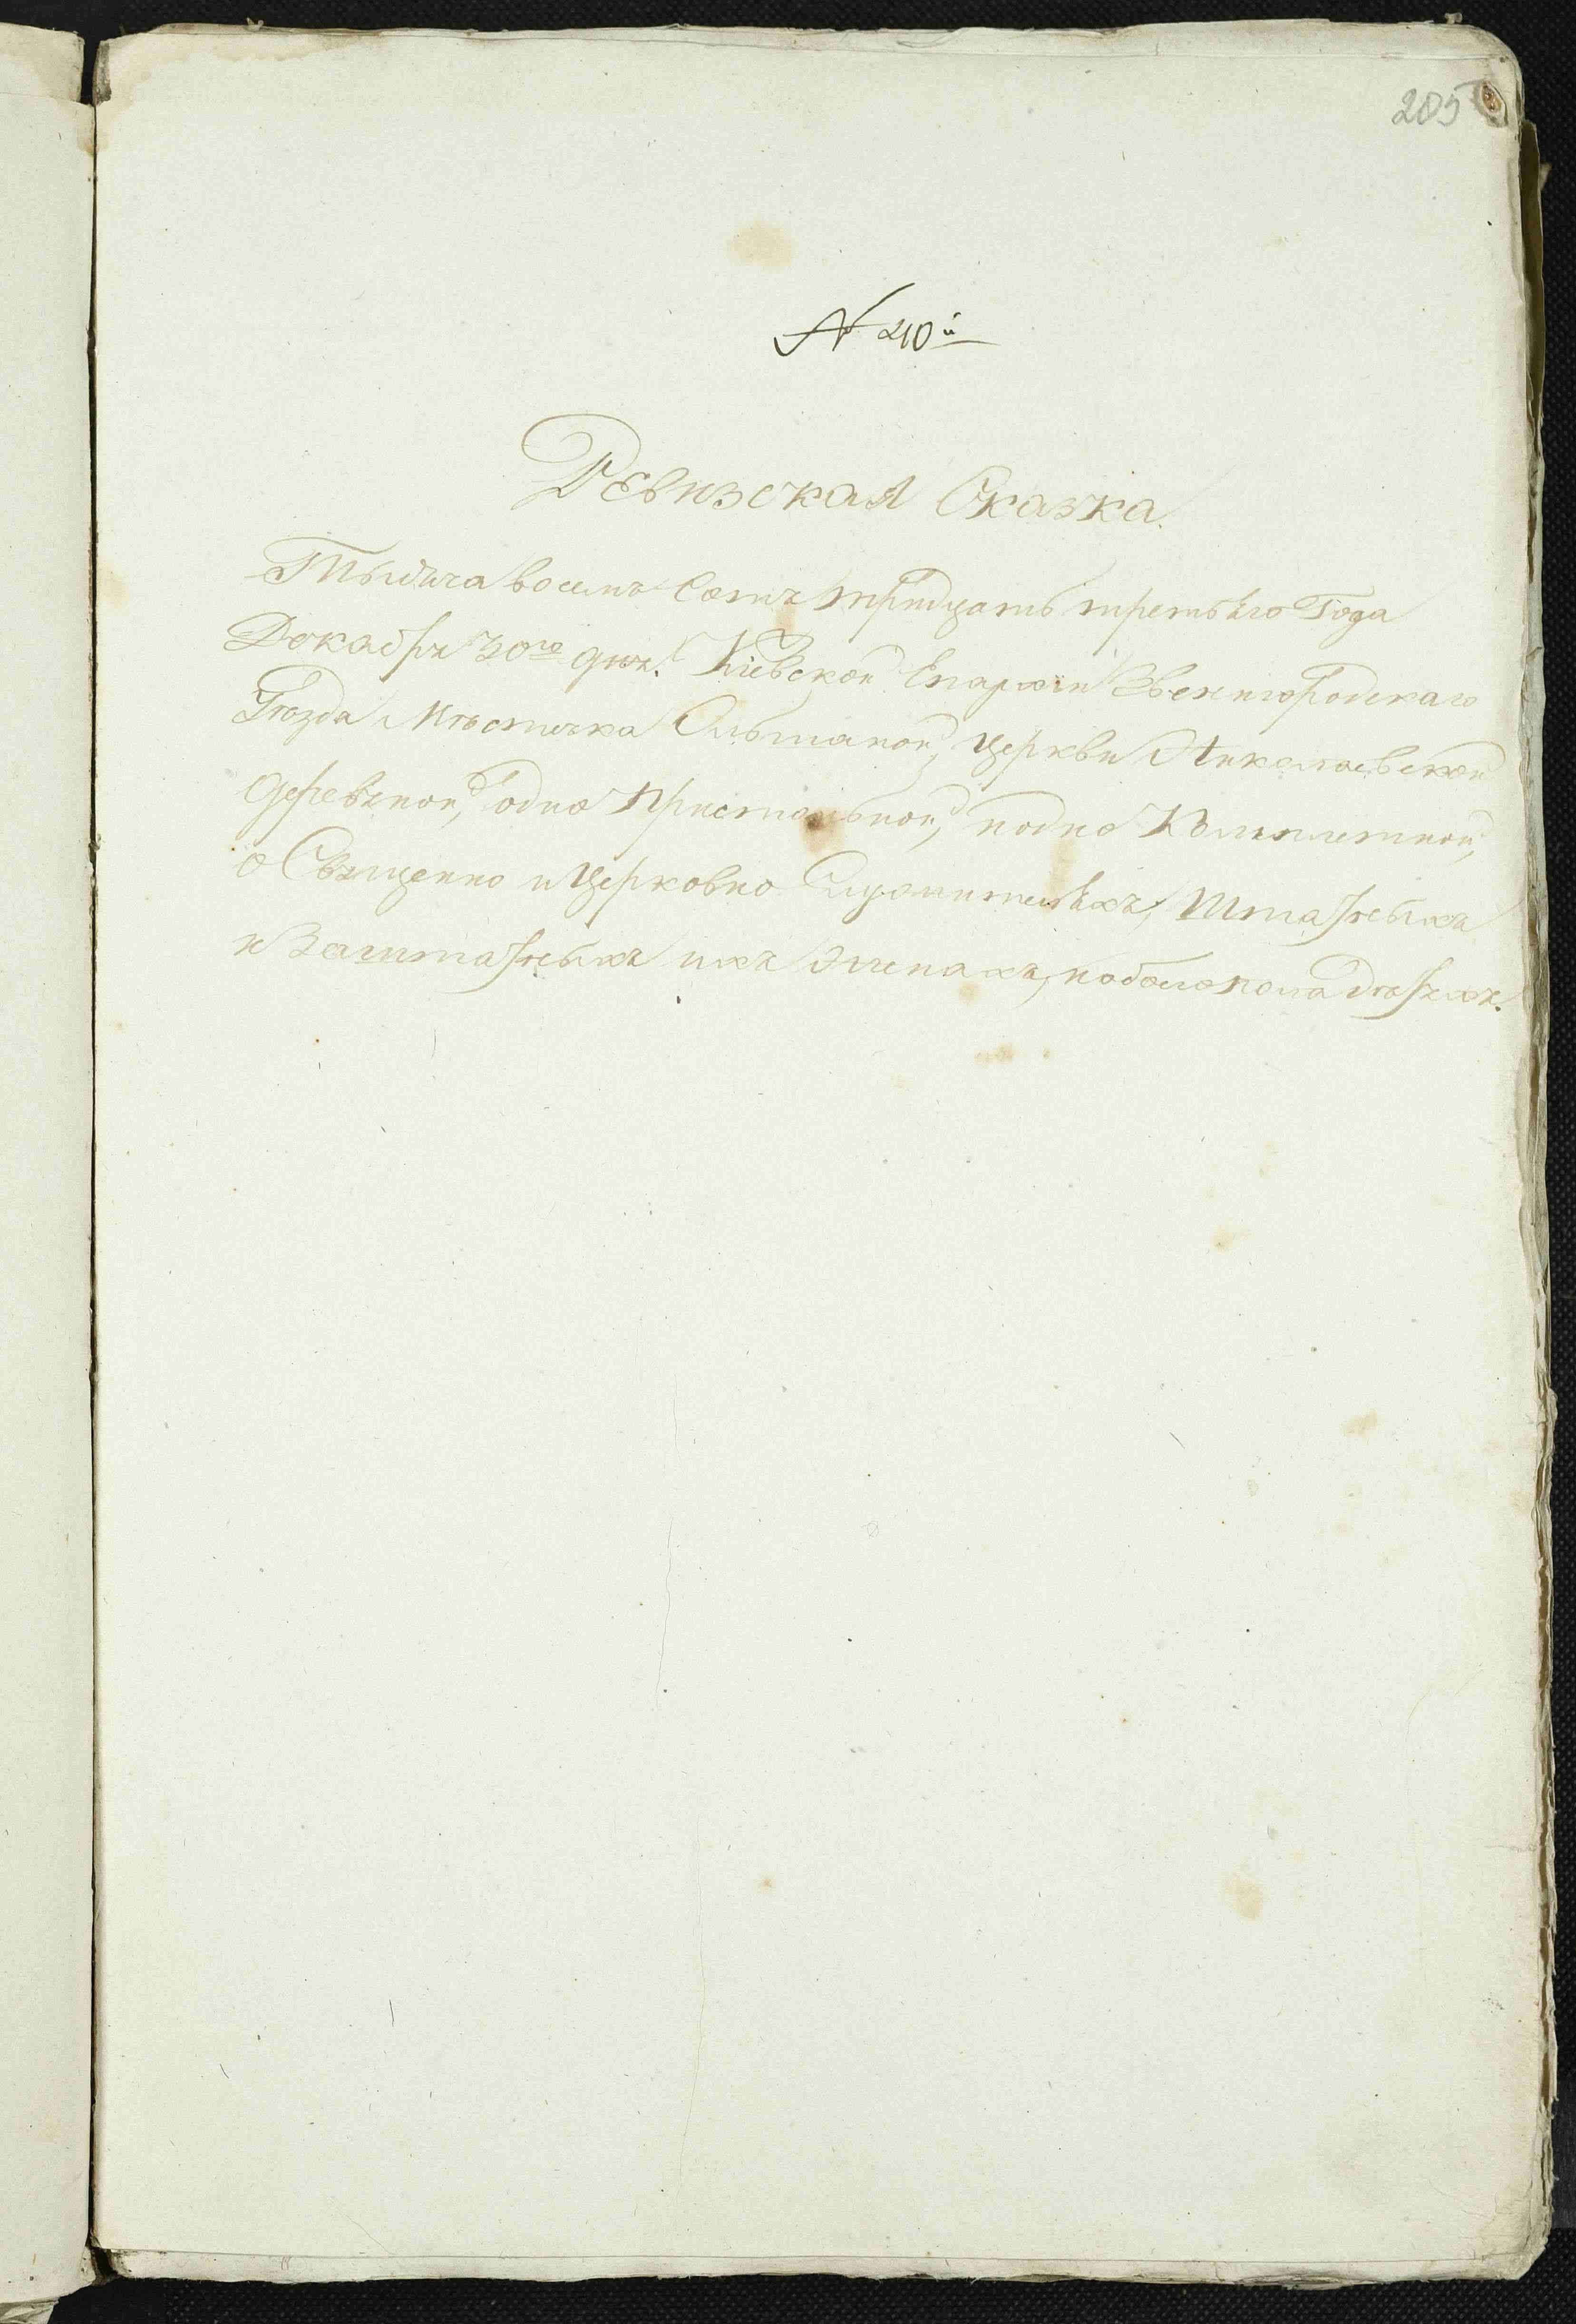 205
№ 210й
Ревизская Сказка.
Тысяча восемь Сотъ тридцать третьяго Года
Декабря 30го дня. Кіевской Епархіи Звенигородскаго
Уѣзда Мѣстечка Ольшаной, церкви Николаевской
деревяной, одно престольной, и одно Комплетной,
о Священно и Церковно Служителяхъ, Штатныхъ
и Заштатныхъ ихъ Женахъ, и обоего пола дѣтяхъ.